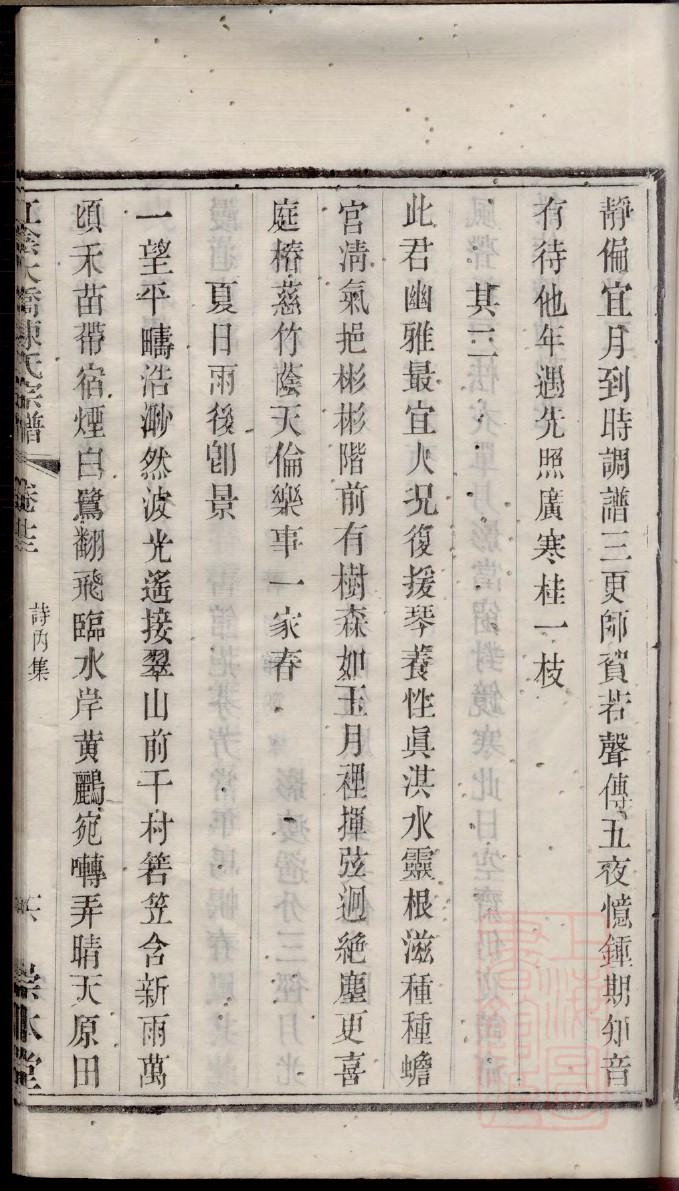 靜偏宜月到時調譜三更師賀若聲傳五夜憶鍾期知音
有待他年遇先照廣寒桂一枝
其三
此君幽雅最宜人況復援琴養性眞淇水靈根滋種種蟾
宮淸氣挹彬彬階前有樹森如玉月裡揮弦迥絕塵更喜
庭椿慈竹蔭天倫樂事一家春
夏日雨後卽景
一望平疇浩渺然波光遙接翠山前千村箬笠含新雨萬
頃禾苗帶宿煙白鷺翻飛臨水岸黄鸝宛囀弄晴天原田
江陰大橋陳氏宗譜 卷廿三 詩內集 六 崇本堂